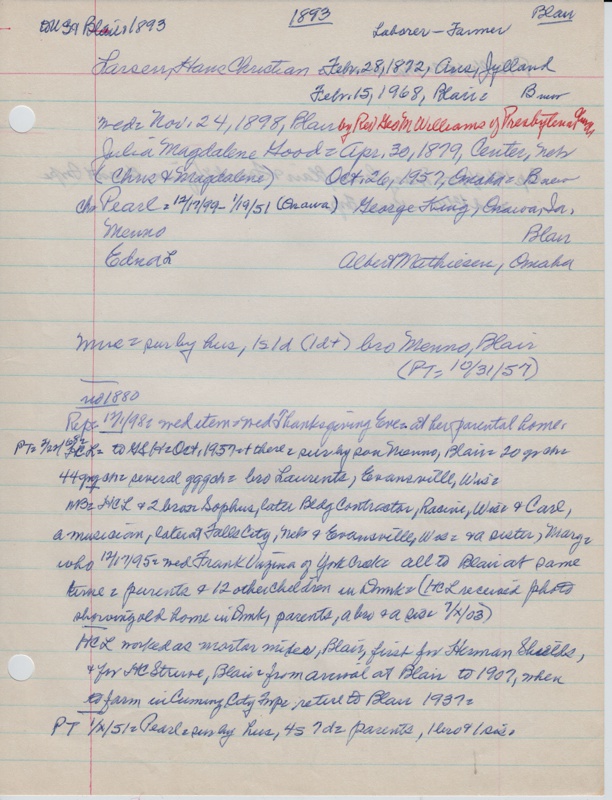 1893
Blair
Blair 1893
Laborer - Farmer
Larsen, Hans Christian = Feb. 28, 1872, Ars, Jylland
Feb. 15, 1968, Blair = B new
med = Nov. 24, 1898, Blair by Rev Geo M Williams of Presbyterian
Julia Magdalene Hood = Apr. 30, 1879, Center, Neb
(Chris & Magdalene) Oct. 26, 1957, Omaha = B new
ch Pearl = 12/17/99 - 1/19/51 (Onawa) George King, Onawa, Ia.
Menno Blair
Edna L Albert Mathiesen, Omaha
Mrs = sur by hus, 1s 1d (1d+) bro Menno, Blair
(PT = 10/31/57)
no 1880
Rep = 12/1/98 = wed item = wed Thanksgiving Eve = at her parental home.
PT = 2/22/68 = HCL = to = Oct. 1957 + there = sur by son Menno, Blair = 20 gr ch =
44 ggr ch = several gggch = bro Laurents, Evansville, Wis =
NB = HCL & 2 bros Sophus, later Bldg Contractor, Racine, Wis = & Carl,
a musician, later at Falls City, Neb & Evansville, Wis = & a sister, Marg =
who 12/17/95 = wed Frank of York Creek = all to Blair at same
time = parents & 12 other children in Dmk = (HCL received photo
showing old home in Dmk, parents, a bro & a sis = 7/x/03)
HCL worked as mortar mixer, Blair, first for Herman Shields,
& for HC Struve, Blair = from arrival at Blair to 1907, when
to farm in Cuming City Twp, retire to Blair 1937 =
PT 1/x/51 = Pearl = sur by hus, 4s 7d = parents, 1 bro & 1 sis.